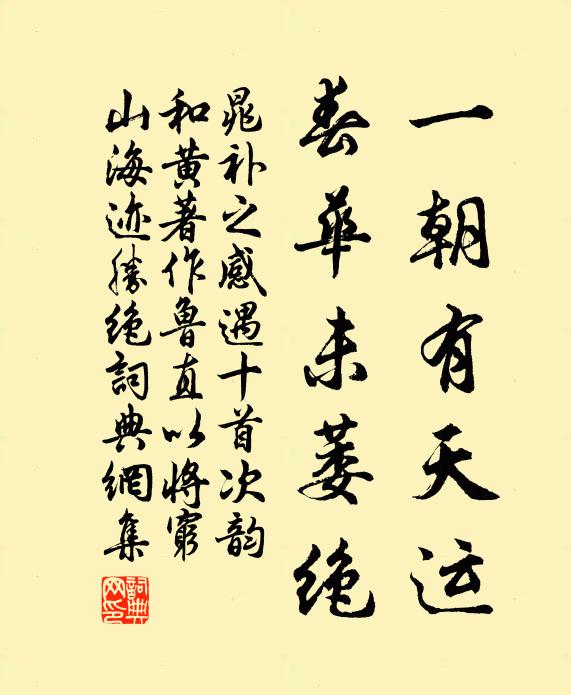 一朝有天运
春华未萎绝
晁补之感遇十首次韵
和黄著作鲁直以将穷
山海迹胜绝词典網集
詞典网印